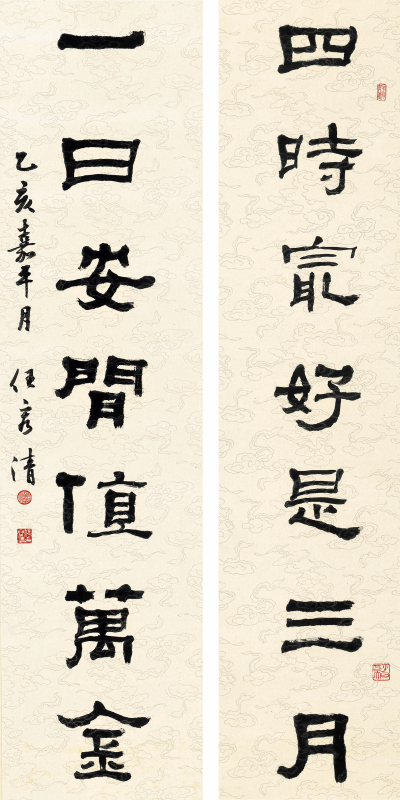 四時最好是三月
一日安閒值萬金
乙亥嘉平月 任容清